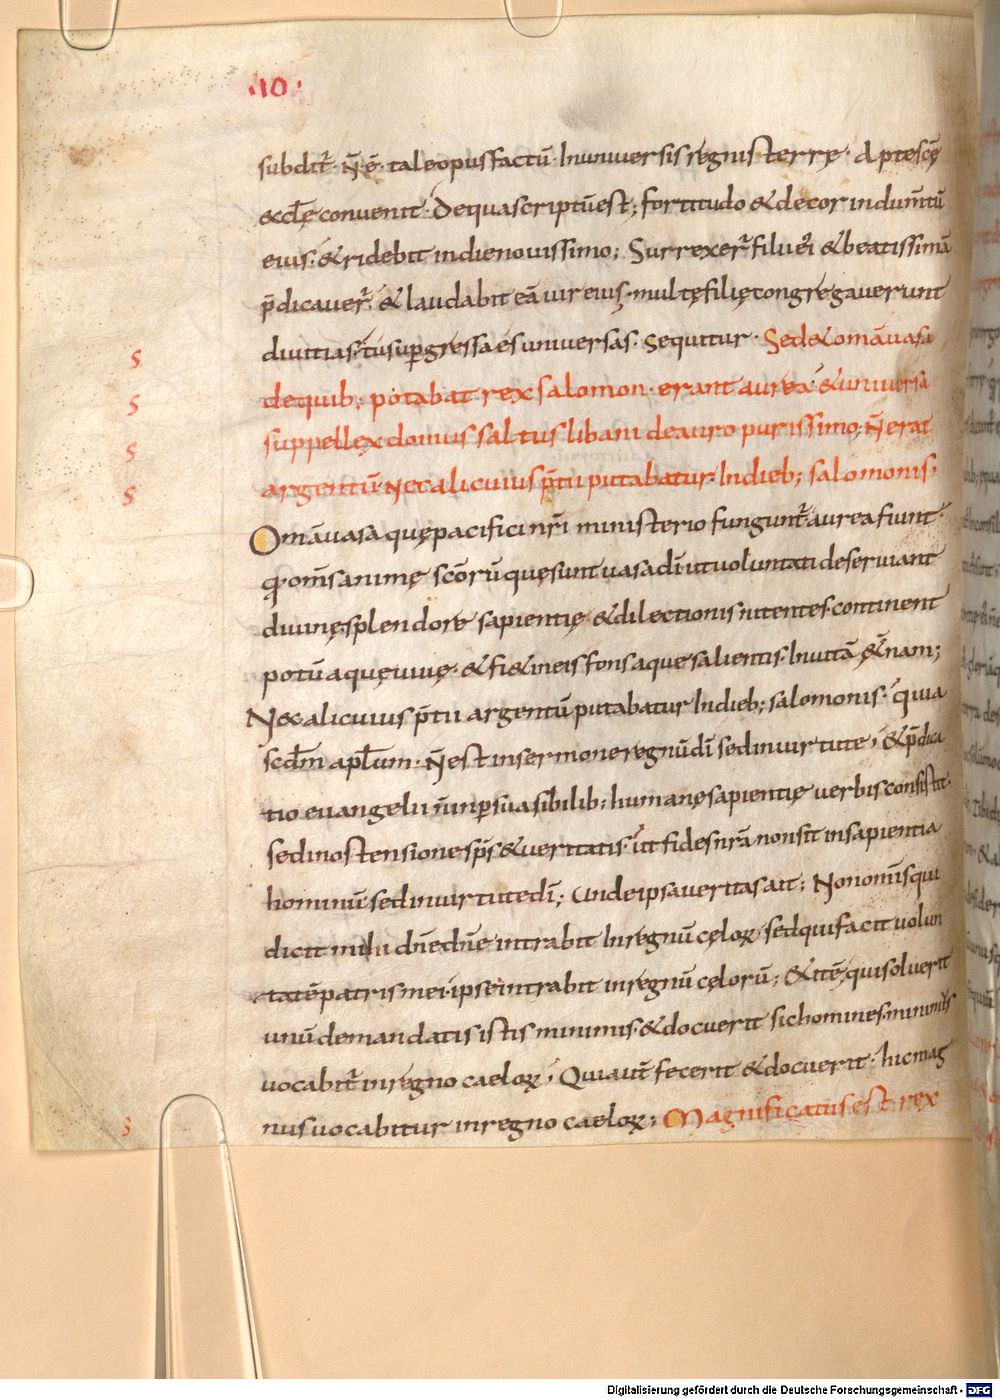 .10.
subdit̄. n̄ ē. tale opus factū. In universis regnis terrę. Apte scę
& cłę convenit. De qua scriptū est; fortitudo & decor indum̄tū
eius. & ridebit in die novissimo; Surrexer̄ filii ei & beatissimā
p̄dicaver̄. & laudabit eā vir eius. multę filię congregaverunt
divitias. tu sup̱gressa es universas. Sequitur. Sed & om̄a vasa
S
de quib; potabat rex salomon. erant aurea. & universa
S
suppellex domus saltus libani de auro purissimo. N̄ erat
S
argentū. Nec alicuius p̄tii putabatur. In dieb; salomonis.
S
Om̄a vasa quę pacifici nr̄i ministerio fungunt̄ aurea fiunt.
q̇ om̄s animę scōrū quę sunt vasa dī ut voluntati deserviant
divinę splendore sapientię & dilectionis nitentes. continent
potū aquę vivę. & fi& in eis fons aquę salientis. In vitā ę̄nam;
Nec alicuius p̄tii argentū putabatur In dieb; salomonis. quia
scd̄m apłum. N̄ est in sermone regnū dī sed in virtute; & p̄dica
tio evangelii n̄ in p̱suasibilib; humanę sapientię verbis consistit.
sed in ostensione sps̄ & veritatis. ut fides nr̄a non sit in sapientia
hominū sed in virtute dī; Unde ipsa veritas ait; Non om̄is qui
dicit mihi dn̄e dn̄e intrabit In regnū cęloꝝ. sed qui facit volun
tatē patris mei. ipse intrabit in regnū cęlorū; & itē, qui solverit
unū de mandatis istis minimis. & docuerit sic homines. minimus
vocabit̄ in regno caeloꝝ; Qui aut̄ fecerit & docuerit. hic mag
nus vocabitur in regno caeloꝝ; Magnificatus est rex
S
Digitalisierung gefördert durch die Deutsche Forschungsgemeinschaft - DFG